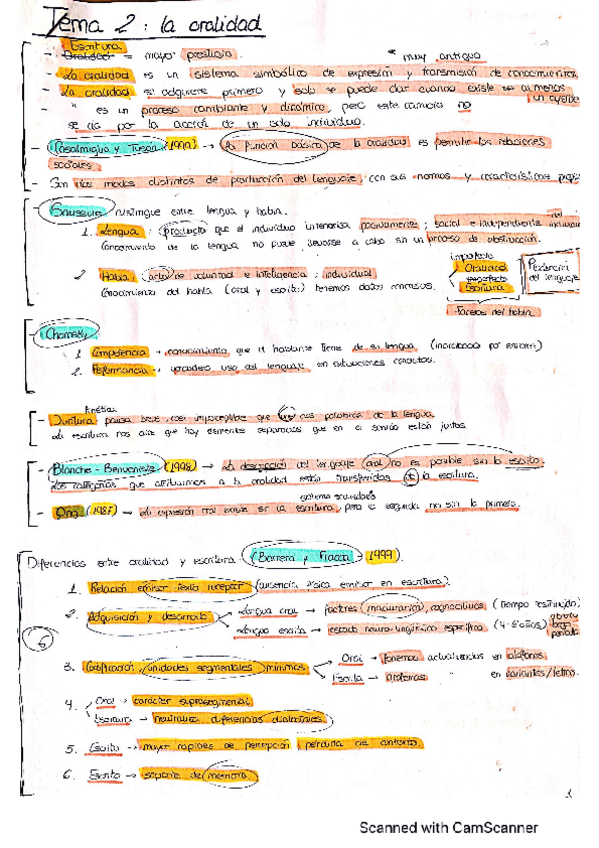 Tema 2: la oralidad
- Escritura
Oralidad = mayor prestigio. * muy antigua
- La oralidad es un sistema simbólico de expresión y transmisión de conocimientos.
- La oralidad se adquiere primero y solo se puede dar cuando existe al menos un oyente
- " es un proceso cambiante y dinámico, pero este cambio no
se da por la acción de un solo individuo.
- Casalmiglia y Tusón (1999) → la función básica de la oralidad es permitir las relaciones
sociales
- Son dos modos distintos de producción del lenguaje con sus normas y características
- Saussure distingue entre lengua y habla.
1. Lengua: producto que el individuo interioriza pasivamente; social e independiente del
Conocimiento de la lengua no puede llevarse a cabo sin un proceso de abstracción.
2. Habla: acto de voluntad e inteligencia; individual.
Conocimiento del habla (oral y escrito) tenemos datos concretos.
imperfecto
Oralidad
perfecto
Escritura
Perfección del lenguaje
Facetas del habla
- Chomsky
1. Competencia → conocimiento que el hablante tiene de su lengua
2. Performancia → verdadero uso del lenguaje en situaciones concretas.
- Juntura: pausa breve, casi imperceptible que las palabras de la lengua.
La escritura nos dice que hay elementos separados que en el sonido están juntos.
- Blanche-Benveniste (1998) → La descripción del lenguaje oral no es posible sin lo escrito.
Las categorías que atribuimos a la oralidad están transferidas de la escritura.
sistema secundario
- Ong (1987) → La expresión oral existe sin la escritura, pero la segunda no sin la primera.
Diferencias entre oralidad y escritura (Barrera y Fracca 1999).
1. Relación emisor texto receptor (ausencia física emisor en escritura).
2. Adquisición y desarrollo
Lengua oral → factores madurativos, cognoscitivos (tiempo restringido)
Lengua escrita → estadio neuro-lingüístico específico (4-6 años) abarca largo periodo
6
3. Codificación, unidades segmentales mínimas
Oral → fonemas actualizados en alófonos.
Escrita → grafemas en variantes/letras.
4. Oral → carácter suprasegmental
Escritura → neutraliza diferencias dialectales
5. Escrito → mayor rapidez de percepción, pérdida del entorno
6. Escrito → soporte de memoria
Scanned with CamScanner